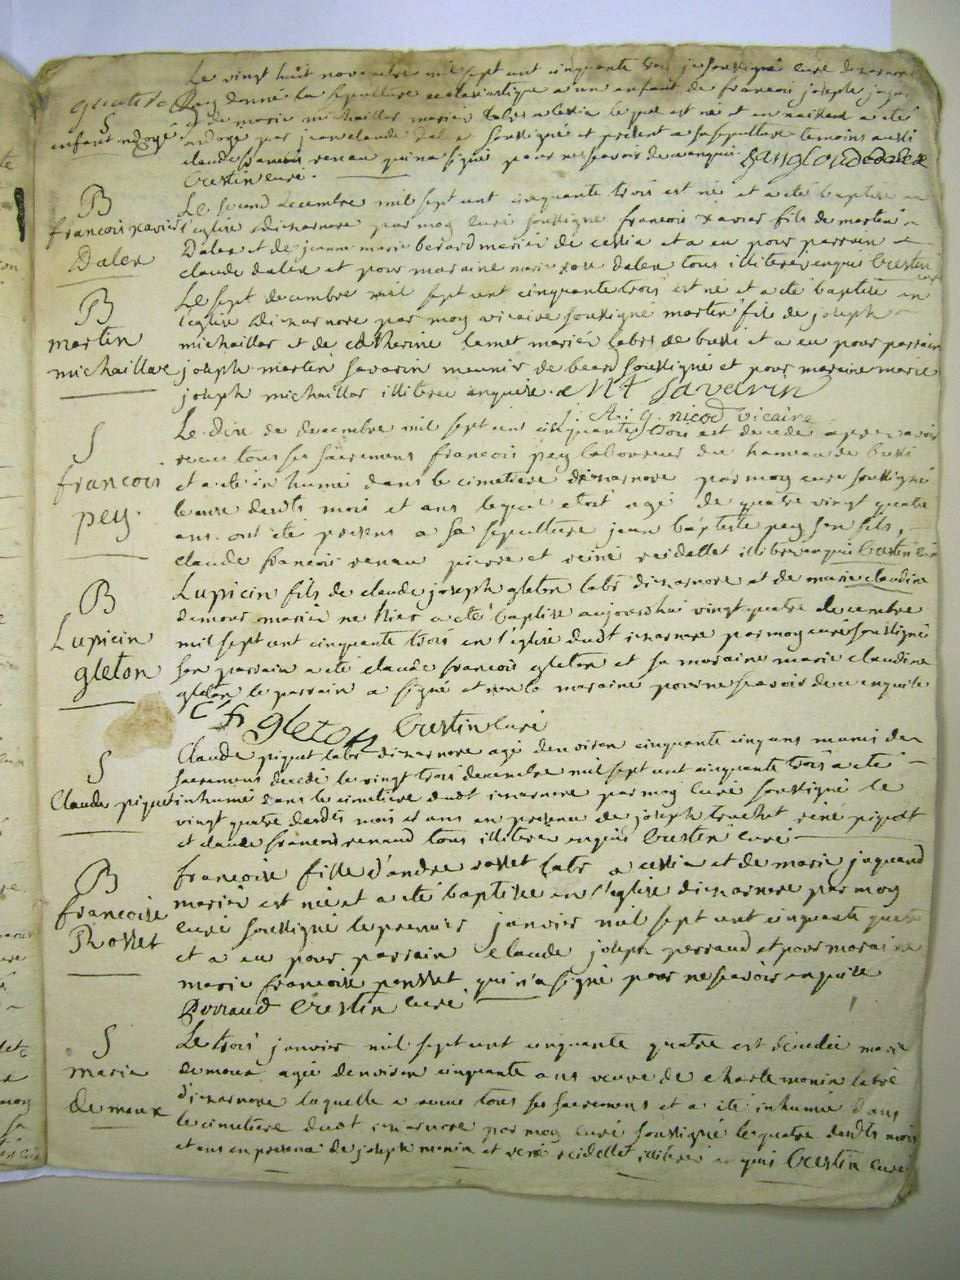 Le vingt huit novembre mil sept cent cinquante trois je soussigné curé dizarnore
ay donné la sepulture ecclesiastique a un enfant de francois joseph
et de marie michaillar mariés labrs a cessia le quel est né et a été
S
enfant ondoyé
ondoyé par jean claude Dalex soussigné et present a sa sepulture temoins aussi
claude francois renau qui na signé pour ne scavoir de ce enquis
Crestin curé.
B
francois xavier
Dalex
Le second decembre mil sept cent cinquante trois est né et a été baptisé en
l'eglise dizarnore par moy curé soussigné francois xavier fils de martin
Dalex et de jeanne marie berard mariés de cessia et a eu pour parrain
claude dalex et pour maraine marie rose dalex tous illiterés enquis Crestin
curé
B
martin
michaillar
Le sept decembre mil sept cent cinquante trois est né et a été baptisé en
l'eglise dizarnore par moy vicaire soussigné martin fils de joseph
michaillar et de catherine lamet mariés labrs de bussi et a eu pour parrain
joseph martin savarin meunir de beard soussigné et pour maraine marie
joseph michaillar illiteree enquise. Mt savarin
j. A. g. nicod vicaire
S
francois
pey.
Le dix de decembre mil sept cent cinquante trois est decedé apres avoir
receu tous ses sacremens francois pey laboureur du hameau de bussi
et a été inhumé dans le cimetiere dizarnore par moy curé soussigné
le onze desdts mois et ans lequel etoit agé de quatre vingt quatre
ans. ont été presens a sa sepulture jean baptiste pey son fils,
claude francois renau pierre et reine reidellet illiterés enquis Crestin curé
B
Lupicin
gleton
Lupicin fils de claude joseph gleton labr dizarnore et de marie claudine
demoux mariés ne hier a été baptisé aujourdhui vingt quatre decembre
mil sept cent cinquante trois en l'eglise dudt izarnore par moy curé soussigné
son parrain a été claude francois gleton et sa maraine marie claudine
gleton le parrain a signé et non la maraine pour ne scavoir de ce enquise
C f gleton Crestin curé
S
Claude piquet
Claude piquet labr dizarnore agé denviron cinquante cinq ans muni des
sacremens decedé le vingt trois decembre mil sept cent cinquante trois a été
inhumé dans le cimetiere dudt izarnore par moy curé soussigné le
vingt quatre desdts mois et ans en presence de joseph truchet réné piquet
et claude francois renaud tous illiterés enquis Crestin curé
B
francoise
Rosset
francoise fille d'andre rosset labr a cessia et de marie jaquand
mariés est née et a été baptisée en l'eglise dizarnore par moy
curé soussigné le premier janvier mil sept cent cinquante quatre
et a eu pour parrain claude joseph perraud et pour maraine
marie francoise ponsset qui n'a signé pour ne scavoir enquise
Perraud Crestin curé
S
marie
demoux
Le trois janvier mil sept cent cinquante quatre est decedée marie
demoux agée denviron cinquante ans veuve de charle monin labr
dizarnore laquelle a receu tous ses sacremens et a été inhumée dans
le cimetiere dudt izarnore par moy curé soussigné le quatre desdts mois
et ans en presence de joseph monin et réné reidellet illiterés enquis Crestin curé